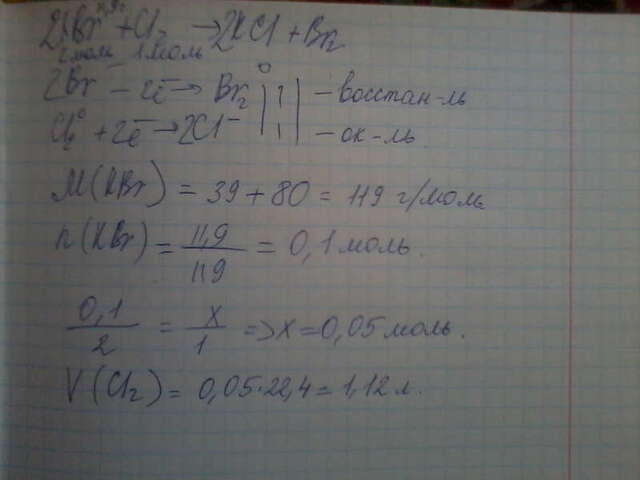 11,9г
2KBr + Cl₂ → 2KCl + Br₂
2моль 1моль
2Br⁻ - 2ē → Br₂⁰ | 1 | - восстан-ль
Cl₂⁰ + 2ē → 2Cl⁻ | 1 | - ок-ль.
M(KBr) = 39 + 80 = 119 г/моль
n(KBr) = 11,9/119 = 0,1 моль.
0,1/2 = x/1 => x = 0,05 моль.
V(Cl₂) = 0,05·22,4 = 1,12 л.